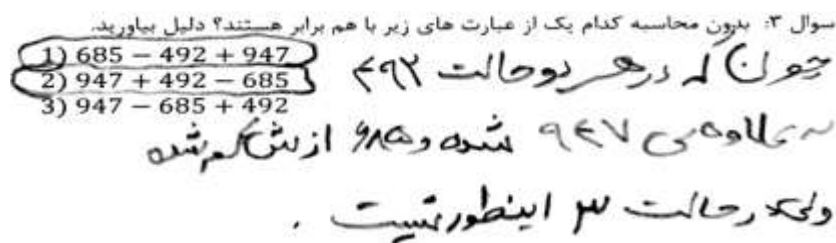 سوال ۳: بدون محاسبه کدام یک از عبارت های زیر با هم برابر هستند؟ دلیل بیاورید.
1) 685 − 492 + 947
2) 947 + 492 − 685
3) 947 − 685 + 492
چون که در هر دو حالت ۴۹۲
به علاوه‌ی ۹۴۷ شده و ۶۸۵ ازش کم شده
ولی در حالت ۳ اینطور نیست .